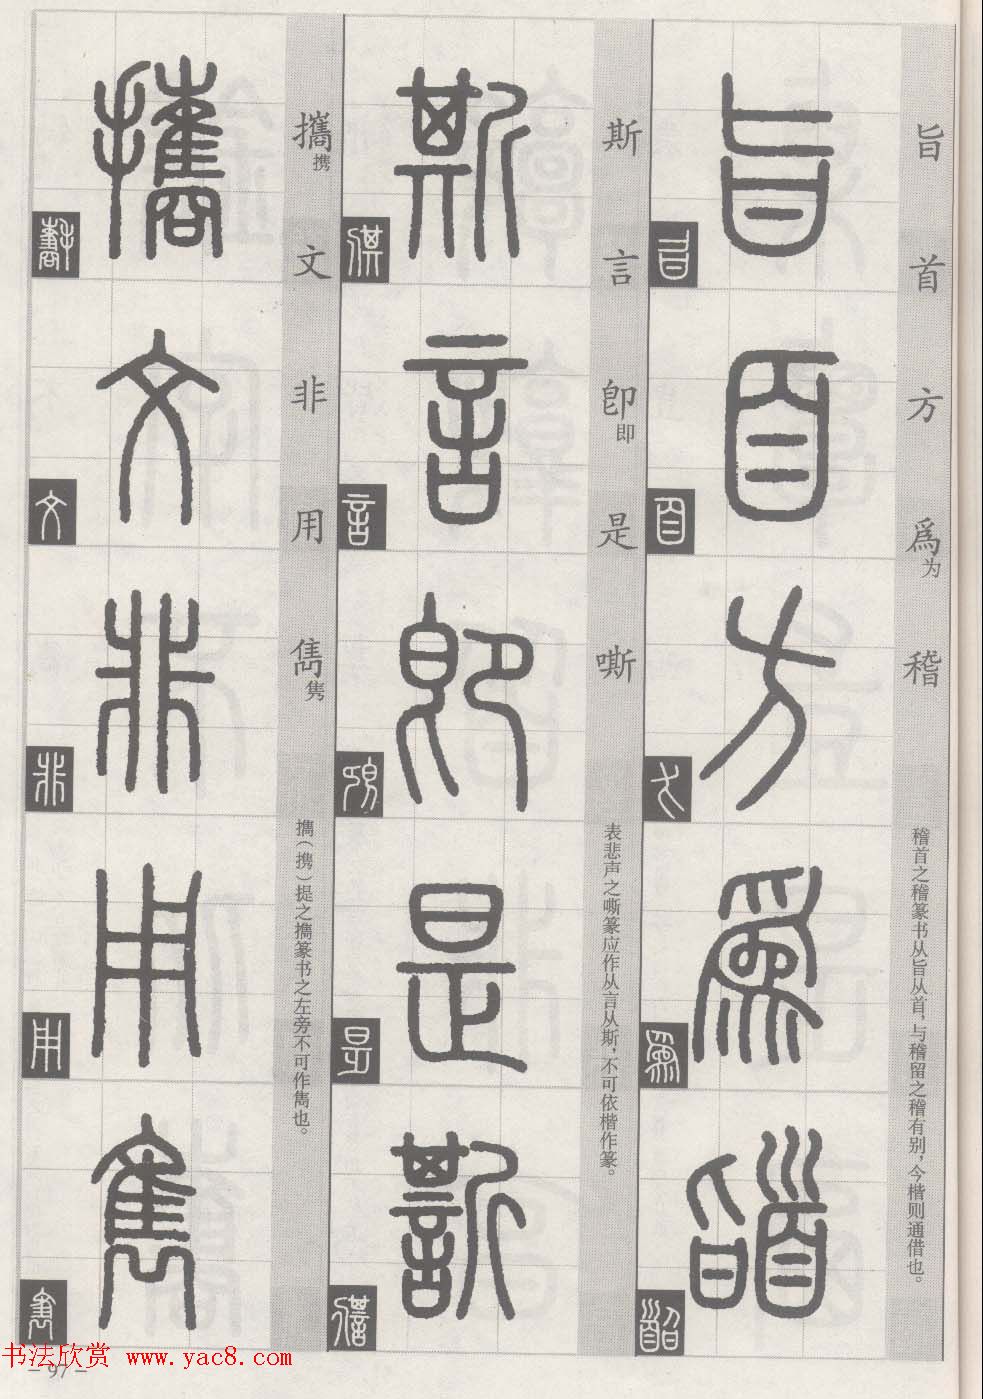 旨首方爲为稽
稽首之稽篆书从旨从首，与稽留之稽有别，今楷则通借也。
旨首方爲稽
斯言卽即是嘶
表悲声之嘶篆应作从言从斯，不可依楷作篆。
斯言卽是嘶
攜携文非用雋隽
攜（携）提之攜篆书之左旁不可作雋也。
攜文非用雋
书法欣赏 www.yac8.com
- 97 -